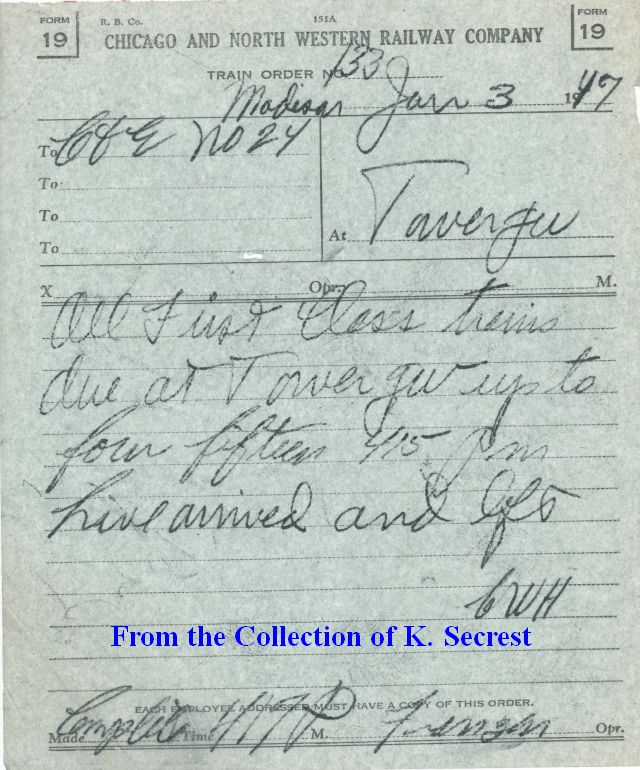 FORM 19 R. B. Co. 151A FORM 19
CHICAGO AND NORTH WESTERN RAILWAY COMPANY
TRAIN ORDER NO. 133
Madison Jan 3 1947
To C & E No 24
To
To
To
At Tower gw
X Opr. M.
All First Class trains
due at Tower gw up to
four fifteen 415 pm
have arrived and left
CWH
From the Collection of K. Secrest
EACH EMPLOYEE ADDRESSED MUST HAVE A COPY OF THIS ORDER.
Made Complete Time 417 P M. Opr.